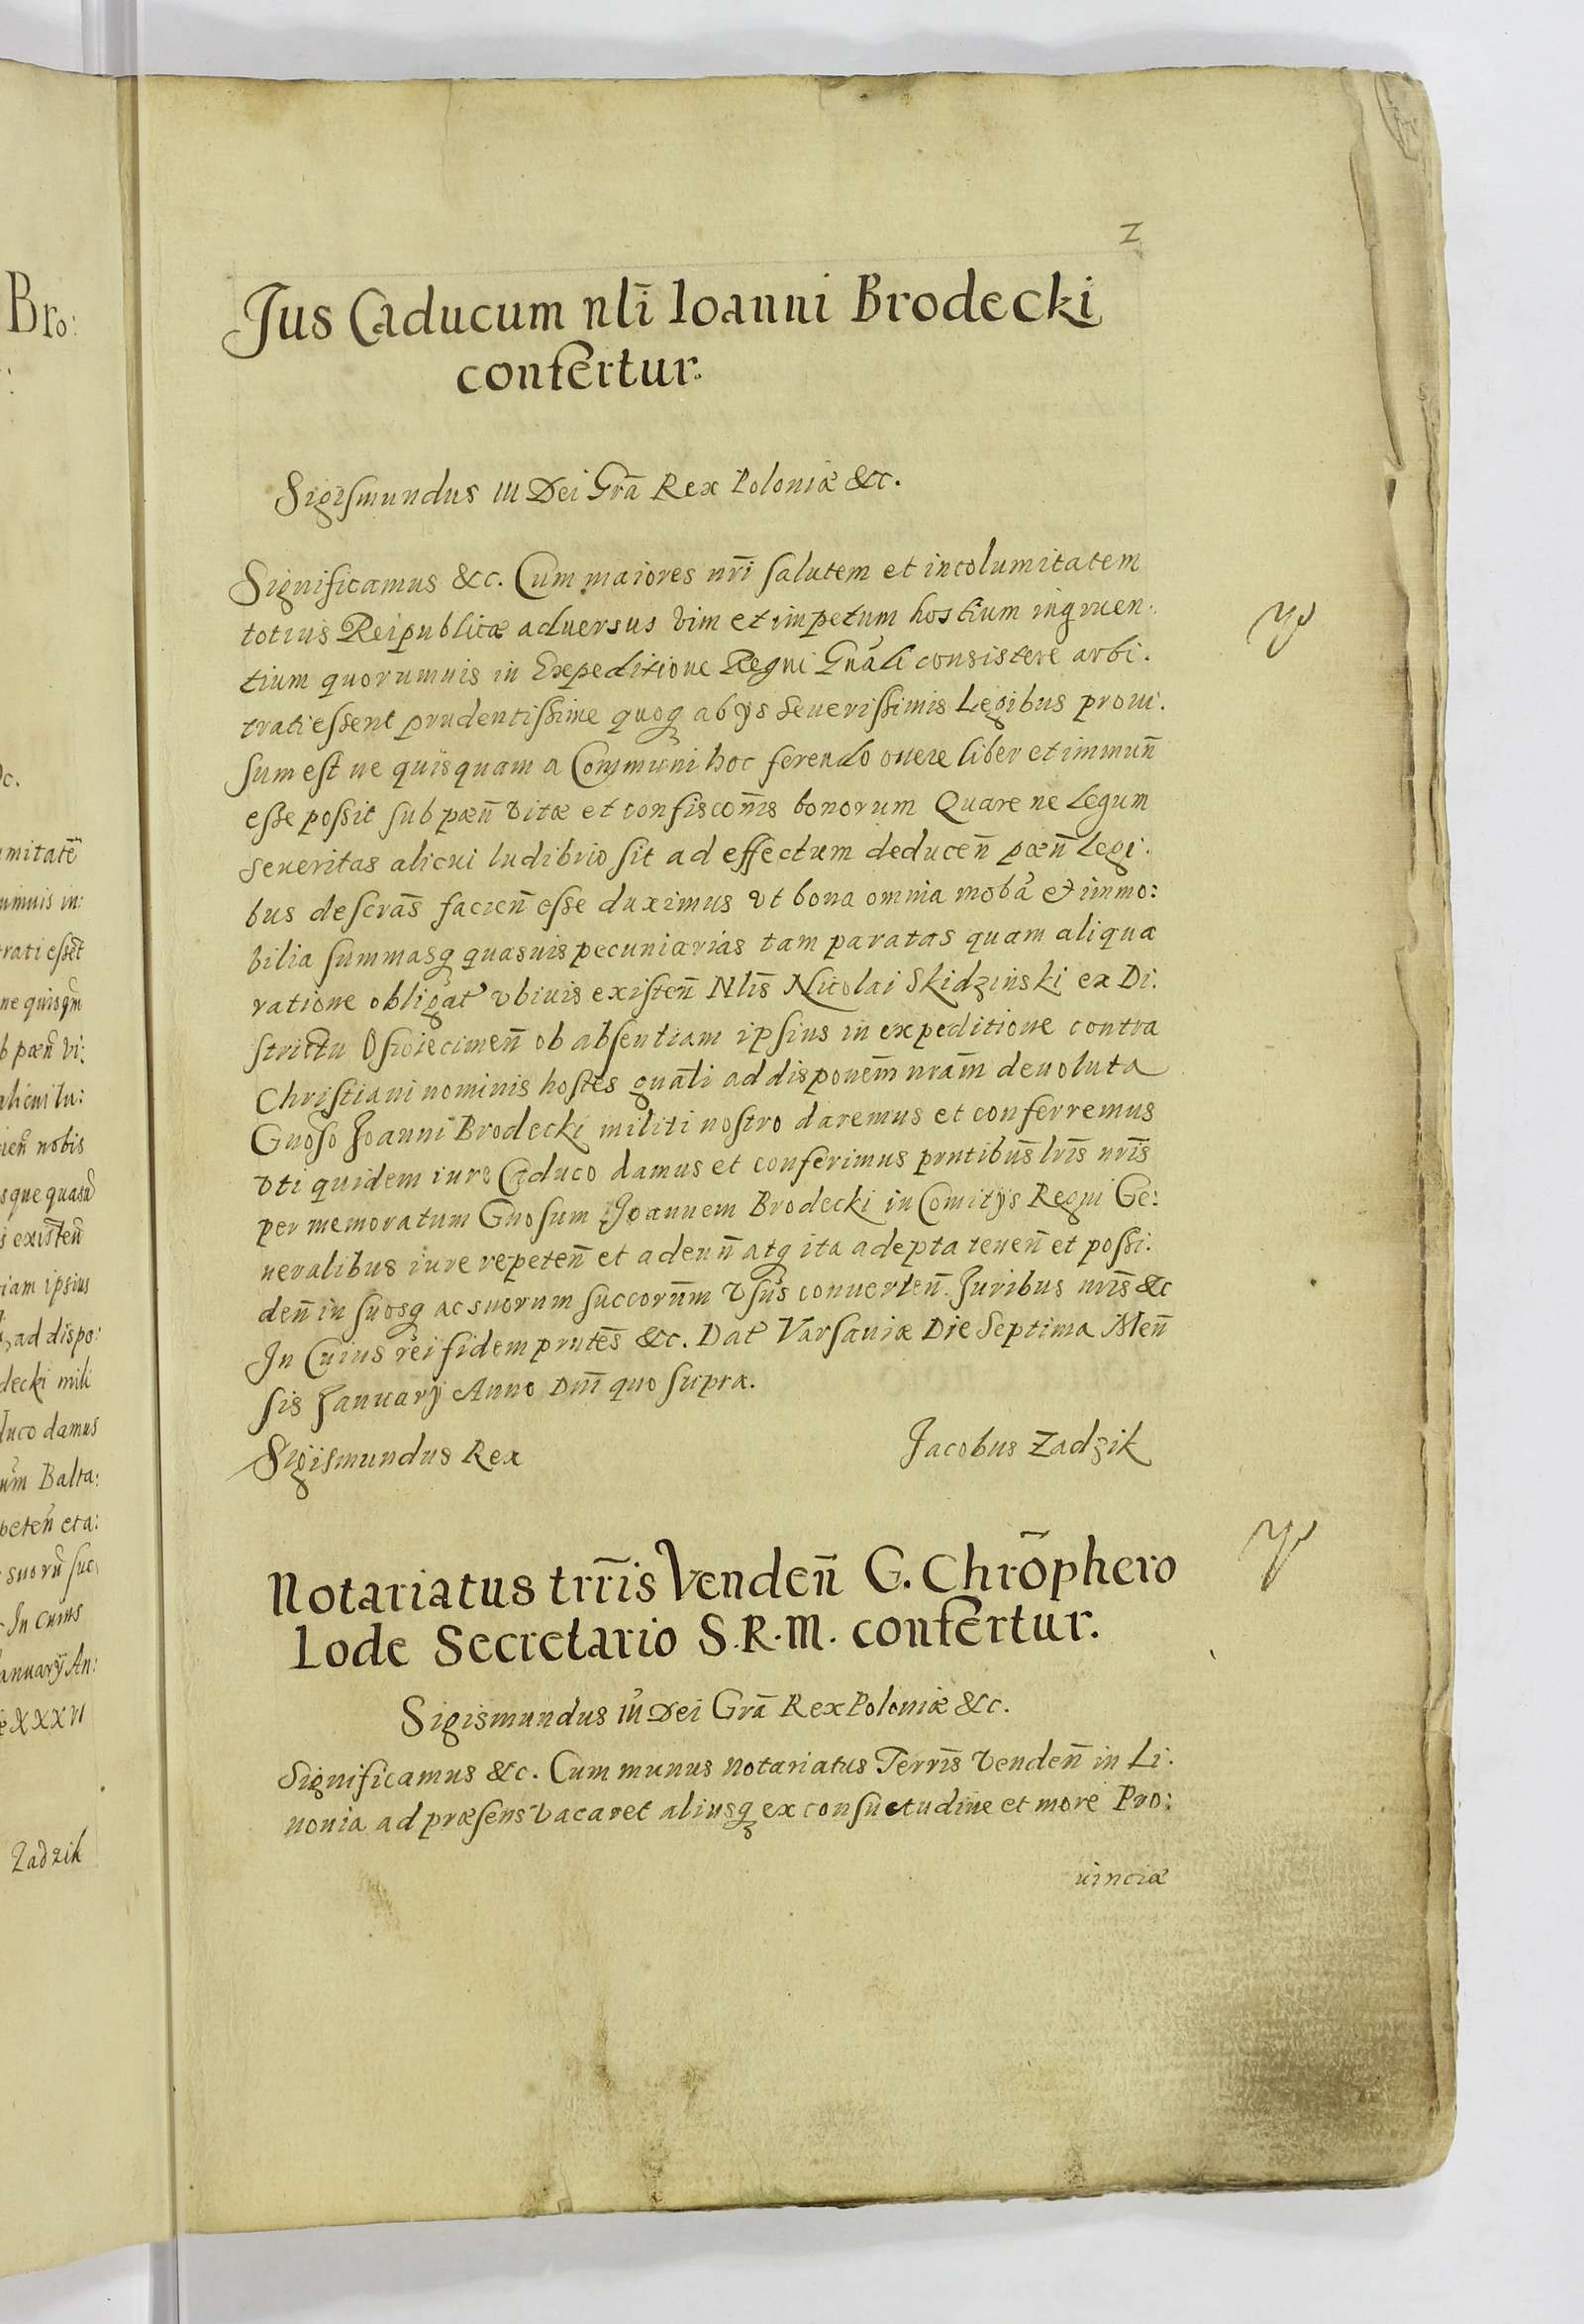 2
Jus Caducum nli̅ Ioanni Brodecki
confertur.
Sigismundus III Dei Gra̅ Rex Poloniæ &c.
Significamus &c. Cum maiores nri̅ salutem et incolumitatem
totius Reipublicæ aduersus vim et impetum hostium ingruen:
tium quorumuis in Expeditione Regni Gnali consistere arbi:
trati essent prudentissime quoq abijs seuerissimis Legibus proui:
sum est ne quisquam a Communi hoc ferendo onere liber et immun̅
esse possit sub pæn̅ vitæ et confiscon̅is bonorum Quare ne Legum
seueritas alicui ludibrio sit ad effectum deducen̅ pœn̅ Legi:
bus descras̅ facien̅ esse duximus vt bona omnia moba et immo:
bilia summasq quasuis pecuniarias tam paratas quam aliqua
ratione obligat vbiuis existen̅ Nlis̅ Nicolai Skidzinski ex Di:
strictu Oswiecimen̅ ob absentiam ipsius in expeditione contra
Christiani nominis hostes gnali̅ ad disponem̅ nram̅ deuoluta
Gnoso Joanni Brodecki militi nostro daremus et conferremus
vti quidem iure Caduco damus et conferimus prntibus̅ lris̅ nris̅
per memoratum Gnosum Joannem Brodecki in Comitijs Regni Ge:
neralibus iure repeten̅ et adeun̅ atq ita adepta tenen̅ et possi:
den̅ in suosq ac suorum succorum̅ vsus conuerten̅. Juribus nris̅ &c
In Cuius rei fidem prntes̅ &c. Dat Varsauiæ Die Septima Men̅
sis Januarij Anno Dni̅ quo supra.
Sigismundus Rex Jacobus Zadzik
Notariatus trri̅s Venden̅ G. Chro̅phero
Lode Secretario S.R.M. confertur.
Sigismundus III Dei Gra̅ Rex Poloniæ &c.
Significamus &c. Cum munus Notariatus Terris̅ Venden̅ in Li:
uonia ad præsens vacaret aliusq ex consuetudine et more Pro:
uinciæ